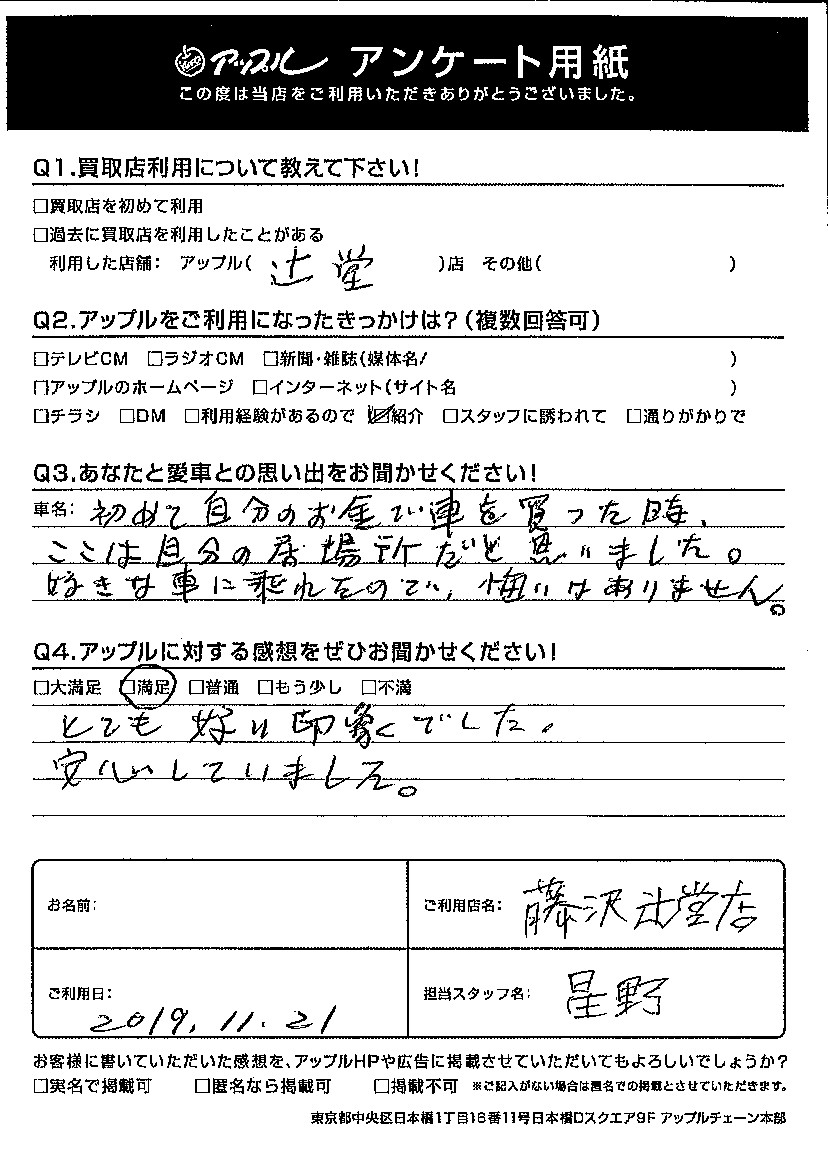 アップル アンケート用紙
この度は当店をご利用いただきありがとうございました。
Q1.買取店利用について教えて下さい!
□買取店を初めて利用
□過去に買取店を利用したことがある
利用した店舗: アップル( 辻堂 )店 その他( )
Q2.アップルをご利用になったきっかけは?(複数回答可)
□テレビCM □ラジオCM □新聞・雑誌(媒体名/ )
□アップルのホームページ □インターネット(サイト名 )
□チラシ □DM □利用経験があるので ☑紹介 □スタッフに誘われて □通りがかりで
Q3.あなたと愛車との思い出をお聞かせください!
車名: 初めて自分のお金で車を買った時、
ここは自分の居場所だと思いました。
好きな車に乗れたので、悔いはありません。
Q4.アップルに対する感想をぜひお聞かせください!
□大満足 □満足 □普通 □もう少し □不満
とても好い印象でした。
安心していました。
お名前:
ご利用店名: 藤沢辻堂店
ご利用日: 2019.11.21
担当スタッフ名: 星野
お客様に書いていただいた感想を、アップルHPや広告に掲載させていただいてもよろしいでしょうか?
□実名で掲載可 □匿名なら掲載可 □掲載不可 ※ご記入がない場合は匿名での掲載とさせていただきます。
東京都中央区日本橋1丁目16番11号日本橋Dスクエア9F アップルチェーン本部